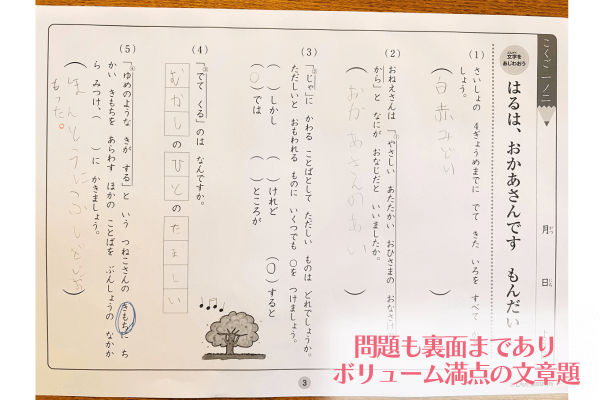 こくご 一ノ二
文字を
あじわおう
はるは、おかあさんです もんだい
月 日
(1) さいしょの 4ぎょうめまでに でて きた いろを すべて
しょう。
( 白 赤 みどり
(2) おねえさんは 「やさしい あたたかい おひさまの おなさけ
から」と なにが おなじだと いいましたか。
( おかあさんのあい )
(3) 「じゃ」に かわる ことばとして ただしい ものは どれでしょうか。
ただしいと おもわれる ものに いくつでも ○を つけましょう。
( )しかし ( )けれど (○)すると
(○)では ( )ところが
(4) 「でて くる」のは なんですか。
むかしのひとのたましい
(5) 「ゆめのような きが する」と いう つねこさんの きもちに ち
かい きもちを あらわす ほかの ことばを ぶんしょうの なかか
ら みつけ、( )に かきましょう。
もった。
3
問題も裏面まであり
ボリューム満点の文章題